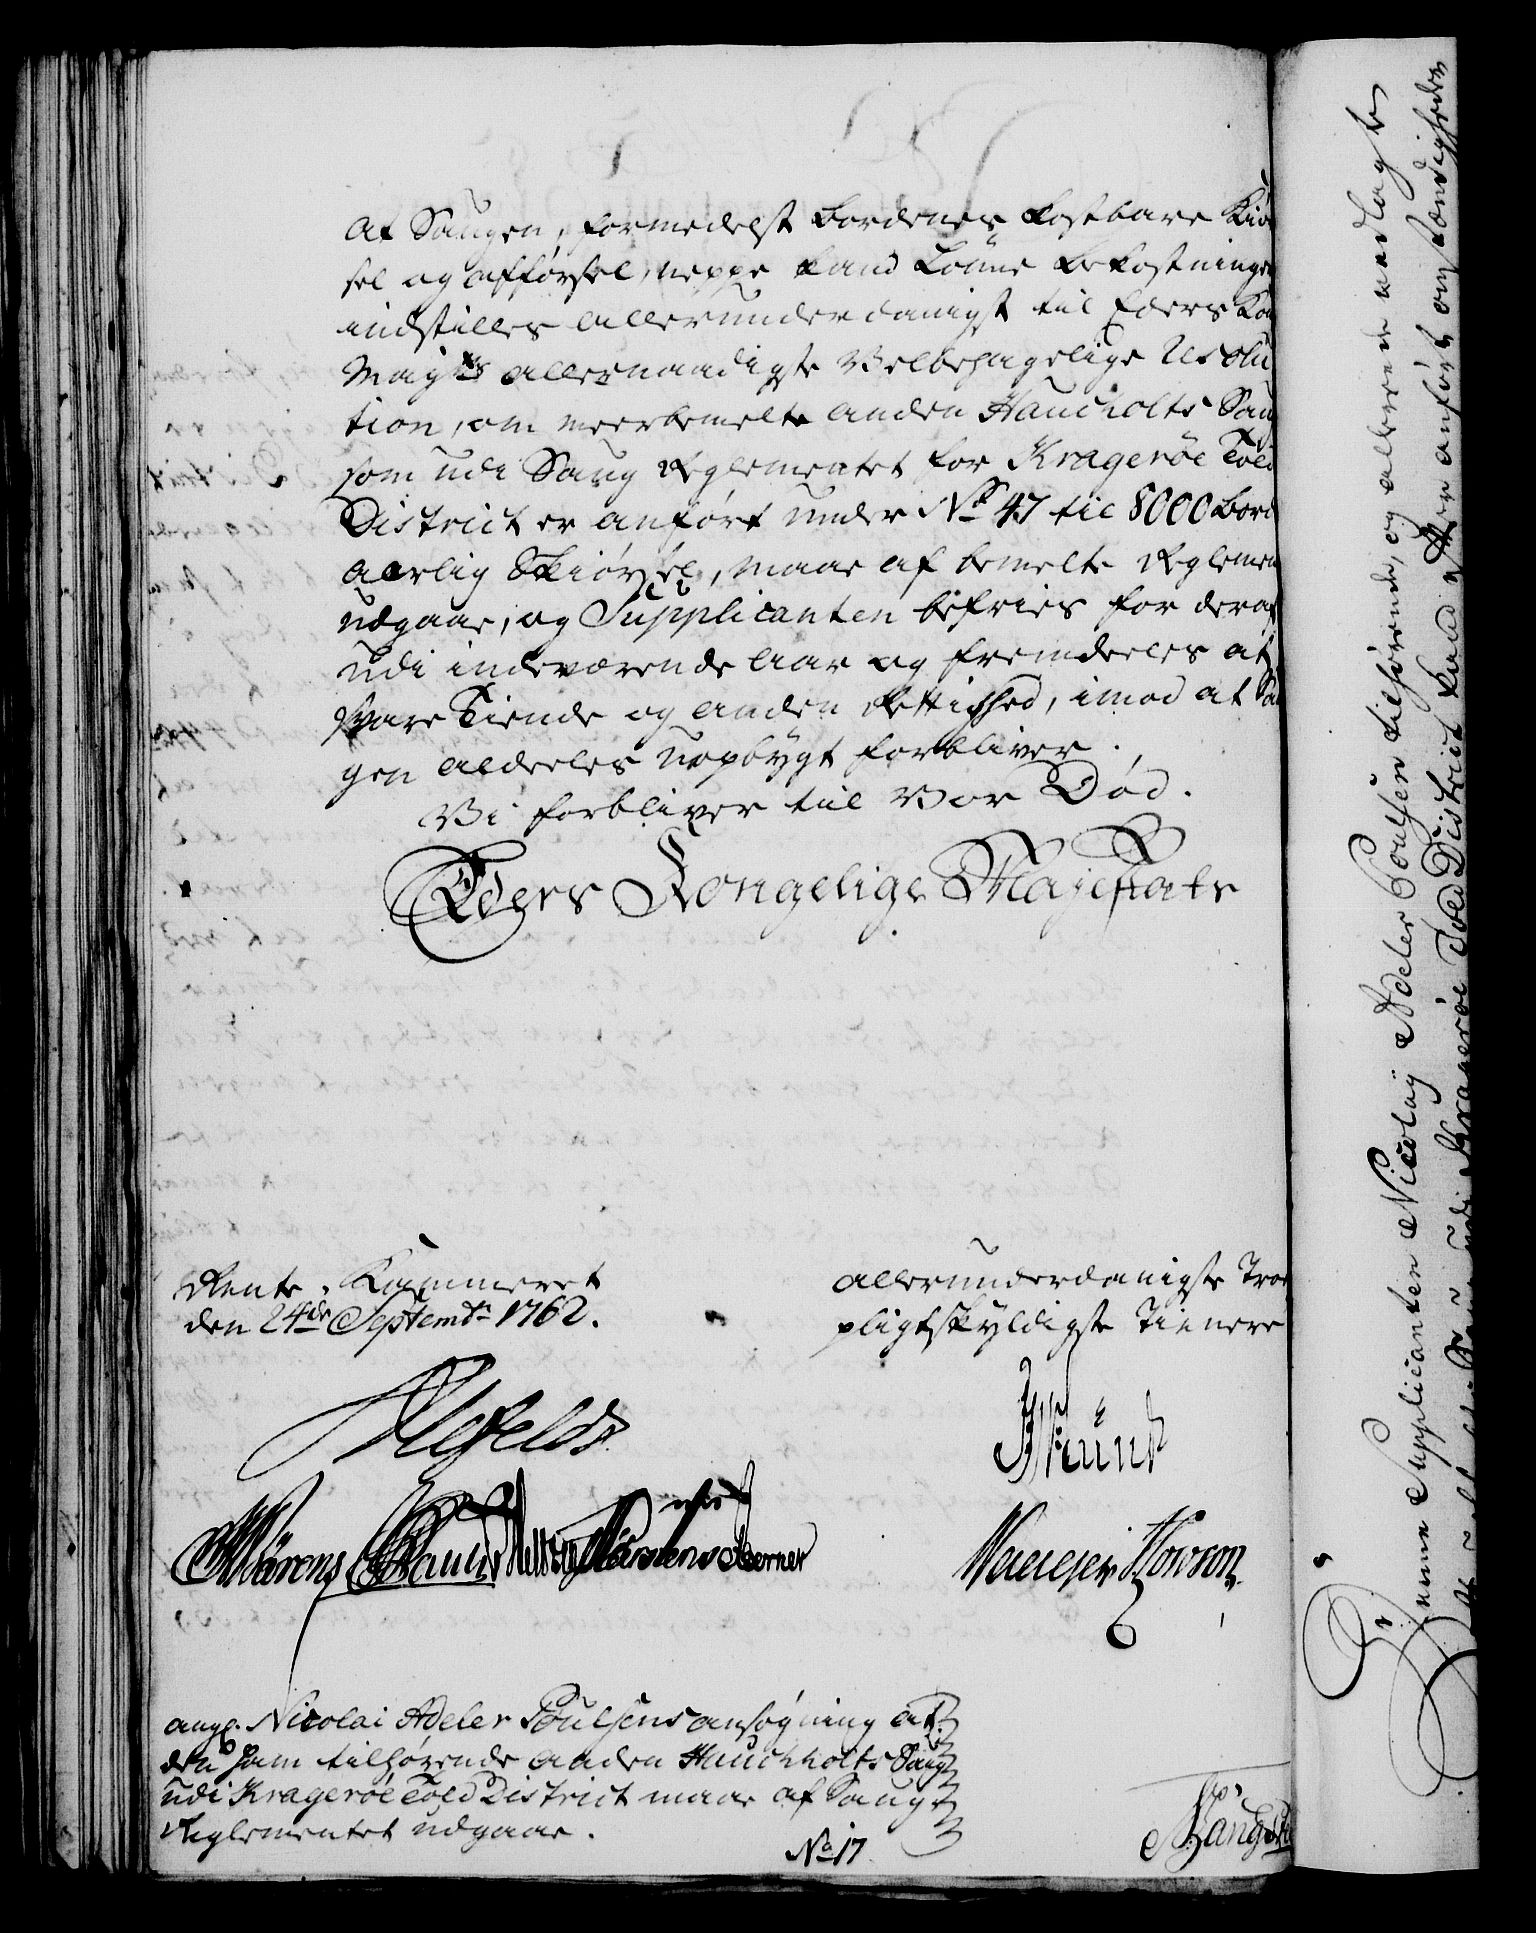 at Saugen, formedelst Bordenes kostbare Kiør
sel og afførsel, neppe kand Lönne Bekostningen
indstilles allerunderdanigst til Eders Kon
Mayts allernaadigste Velbehagelige Resolu
tion, om meerbemelte anden Hauchholts Saug
som udi Saug Reglementet for Kragerøe Told
District er anført under No 47 til 8000 Bord
aarlig Skiørsel, maae af bemelte Reglement
udgaae, og Supplicanten befries for deraf
udi indeværende Aar og fremdeeles at
svare Tiende og anden Rettighed, imod at Sau
gen aldeeles uopbygt forbliver.
Vi forbliver til Vor Död.
Eders Kongelige Majestæts
Rente-Kammeret
den 24de Septembr 1762.
allerunderdanigste Troe
pligtskyldigste Tienere
Ahlefeldt
angl. Nicolai Adeler Poulsens ansøgning at
den ham tilhørende anden Hauchholts Saug
udi Kragerøe Told District maae af Saug-
Reglementet udgaae.
No 17.
Denne Supplicanten Nicolaÿ Adeler Poulsen tilhørende, og allerede nedlagte
udi Kragerøe Told District kand efter anførte omstændigheder